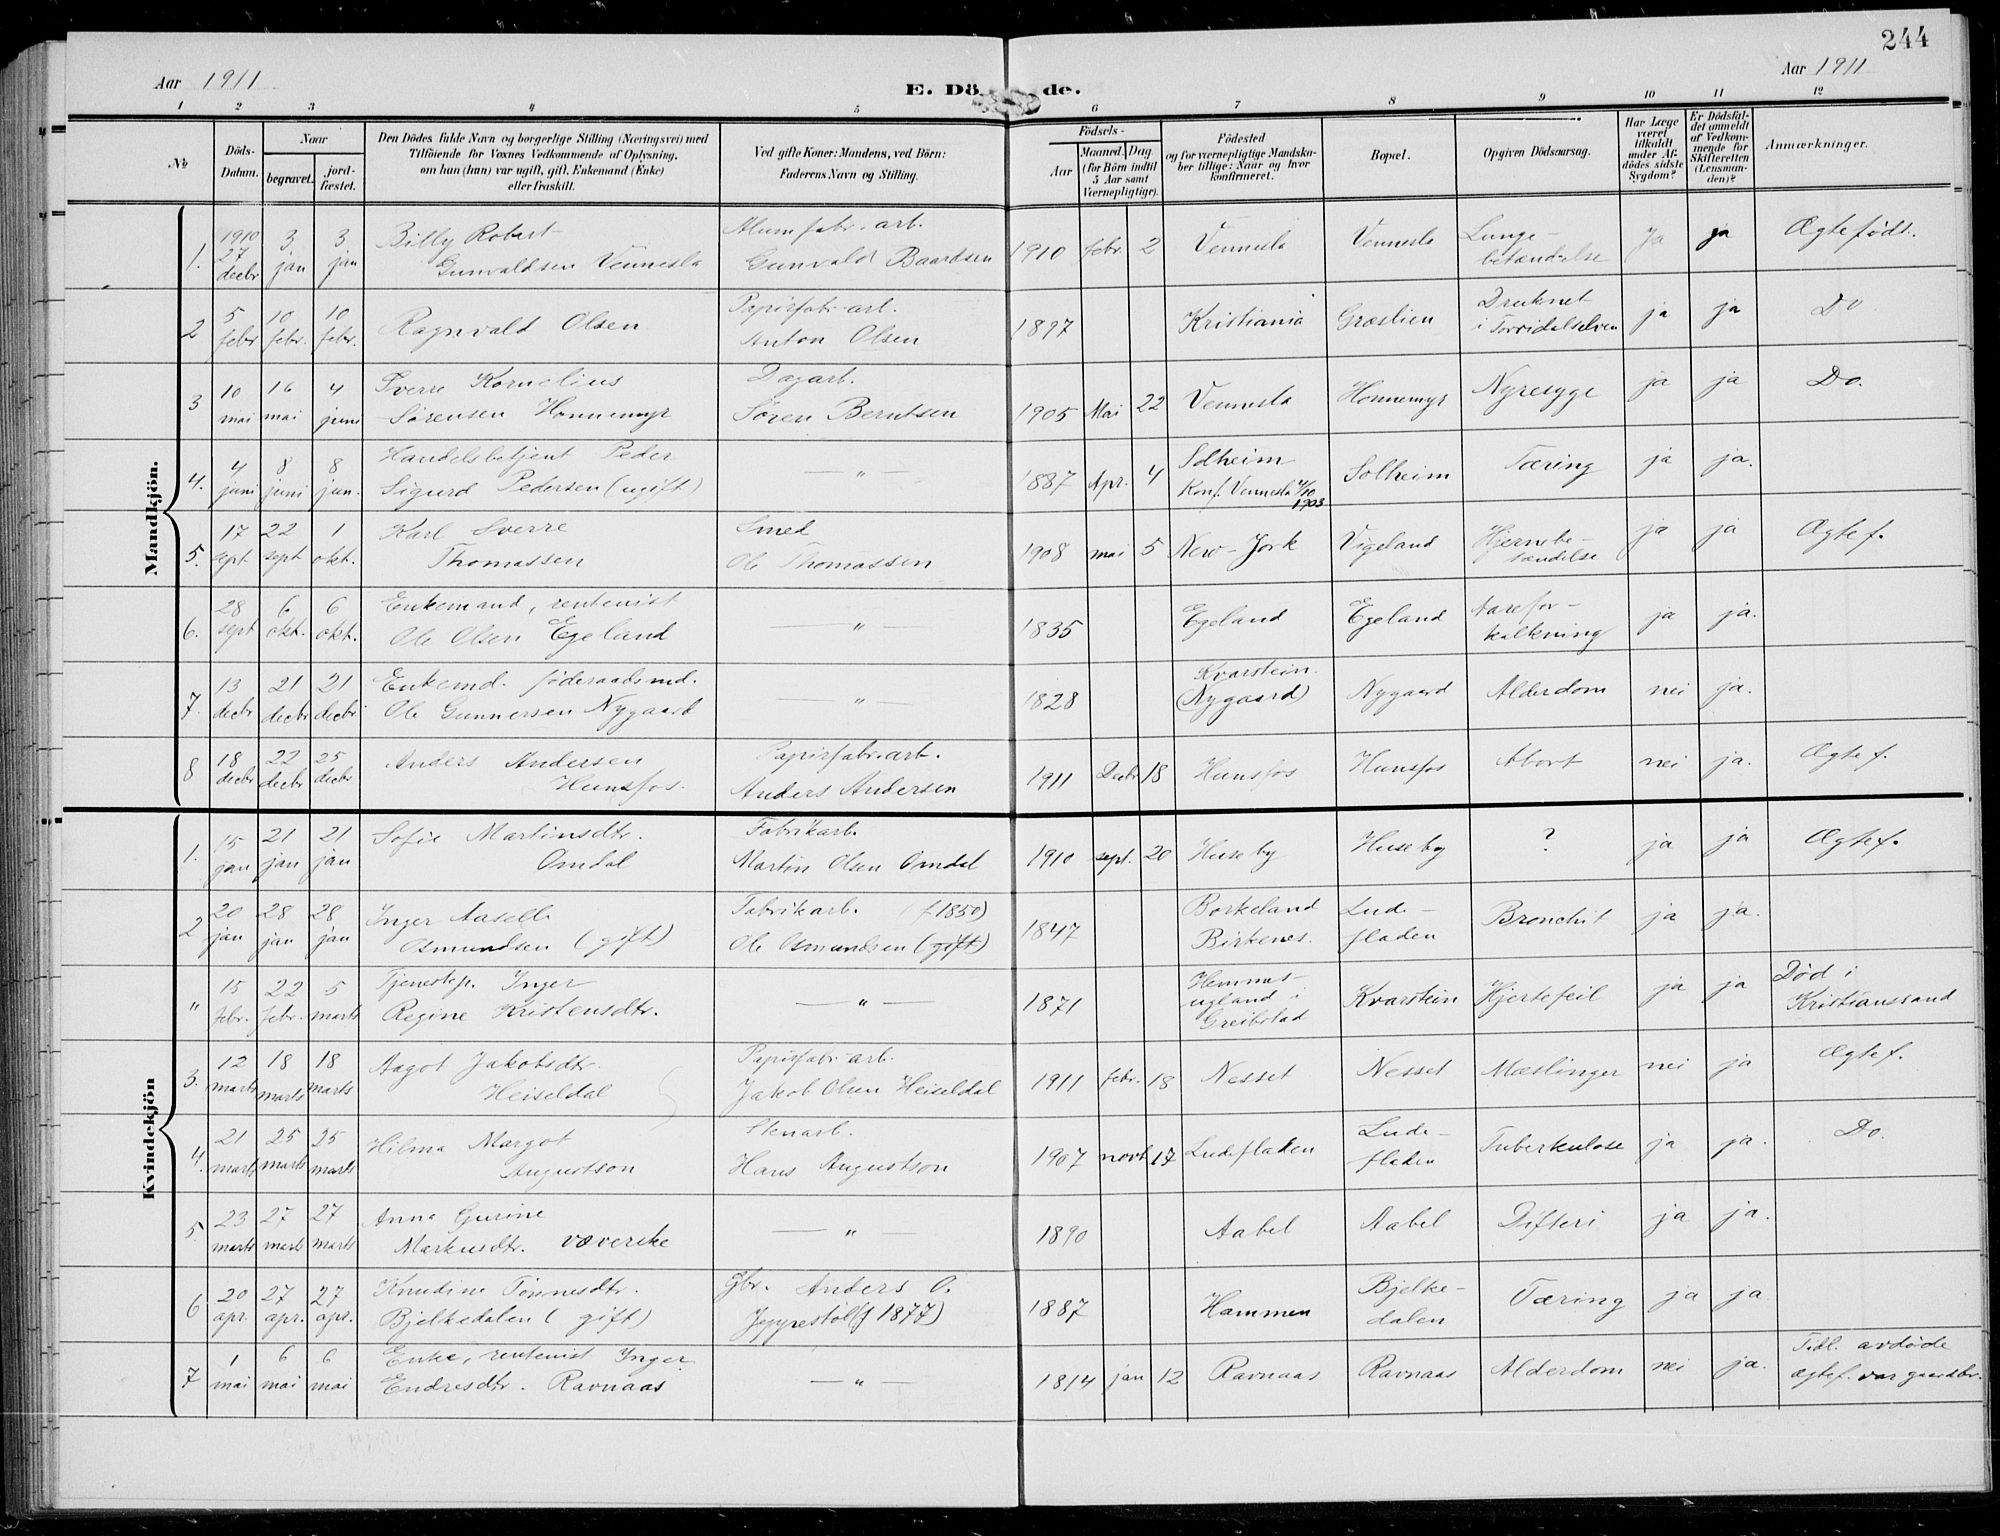 244
Aar 1911
E. Dö
de.
Aar 1911
1 2 3 4 5 6 7 8 9 10 11 12
No
Döds-
Datum.
Naar
begravet.
jord-
fæstet.
Den Dödes fulde Navn og borgerlige Stilling (Næringsvei) med
Tilföiende for Voxnes Vedkommende af Oplysning,
om han (hun) var ugift, gift, Enkemand (Enke)
eller fraskilt.
Ved gifte Koner: Mandens, ved Börn:
Faderens Navn og Stilling.
Födsels-
Aar
Maaned. Dag.
(for Börn indtil
5 Aar samt
Værnepligtige).
Födested
og for værnepligtige Mandska-
ber tillige: Naar og hvor
konfirmeret.
Bopæl.
Opgiven Dödsaarsag.
Har Læge
været
tilkaldt
under Af-
dödes sidste
Sygdom?
Er Dödsfal-
det anmeldt
af Vedkom-
mende for
Skifteretten
(Lensman-
den)?
Anmærkninger.
Mandkjön.
1. 1910 27 decbr 3 jan 3 jan Billy Robert Gunvaldsen Vennesla Alumfabr. arb. Gunvald Baardsen 1910 febr. 2 Vennesla Vennesla Lunge-betændelse Ja ja Ægtefödt.
2 5 febr 10 febr. 10 febr. Ragnvald Olsen Papirfabr. arb. Anton Olsen 1897 Kristiania Græslien Druknet i Torridalselven ja ja Do
3 10 mai 16 mai 4 juni Sverre Kornelius Sörensen Honnemyr Dagarb. Sören Berntsen 1905 Mai 22 Vennesla Honnemyr Nyresyge ja ja Do.
4. 4 juni 8 juni 8 jun. Handelsbetjent Peder Sigurd Pedersen (ugift) — " — 1887 Apr. 4 Solheim Konf. Vennesla 4/10 1903 Solheim Tæring ja ja.
5. 17 sept 22 sept 1 okt. Karl Sverre Thomassen Smed Ole Thomassen 1908 mai 5 New-York Vigeland Hjernebe-tændelse ja ja Ægtef.
6. 28 sept 6 okt. 6 okt. Enkemand, rentenist Ole Olsen Egeland — " — 1835 Egeland Egeland Aarefor-kalkning ja ja.
7. 13 decbr 21 decbr 21 decbr Enkemd. föderaadsmd. Ole Gunnersen Nygaard — " — 1828 Kvarstein. (Nygaard) Nygaard Alderdom nei ja.
8 18 decbr 22 decbr 25 decbr. Anders Andersen Hunsfos. Papirfabr. arb. Anders Andersen 1911 Decbr 18 Hunsfos Hunsfos Abort nei ja. Ægtef.
Kvindekjön
1. 15 jan 21 jan 21 jan Sofie Martinsdtr. Omdal Fabrikarb. Martin Olsen Omdal 1910 sept. 20 Huseby Huseby ? ja ja Ægtef.
2 20 jan 28 jan 28 jan Inger Aaselle Osmundsen (gift) Fabrikarb. (f 1850) Ole Osmundsen (gift) 1847 Borkeland Birkenes. Lude-fladen Bronchit ja ja.
" 15 febr. 22 febr. 5 marts Tjenestep. Inger Regine Kristensdtr. — " — 1871 Hemmes-ugland i Greibstad Kvarstein Hjertefeil ja ja Död i Kristianssand
3. 12 marts 18 marts 18 marts Aagot Jakobsdtr. Heiseldal Papirfabr. arb. Jakob Olsen Heiseldal 1911 febr. 18 Nesset Nesset Mæslinger nei ja Ægtef.
4. 21 marts 25 marts 25 marts Hilma Margot Augustson Stenarb. Hans Augustson 1907 novbr 17 Ludefladen Lude-fladen Tuberkulose ja ja. Do.
5. 23 marts 27 marts 27 marts Anna Gurine Markusdtr. væverske — " — 1890 Aabel Aabel Difteri ja ja.
6 20 apr. 27 apr. 27 apr. Knudine Tönnesdtr. Bjelkedalen (gift) Gbr. Anders O. Jeppestöl (f 1877) 1887 Hammen Bjelke-dalen Tæring ja ja.
7 1 mai 6 mai 6 mai Enke, rentenist Inger Endresdtr. Ravnaas — " — 1814 jan 12 Ravnaas Ravnaas Alderdom nei ja. Tidl. avdöde ægtef. var gaardbr.